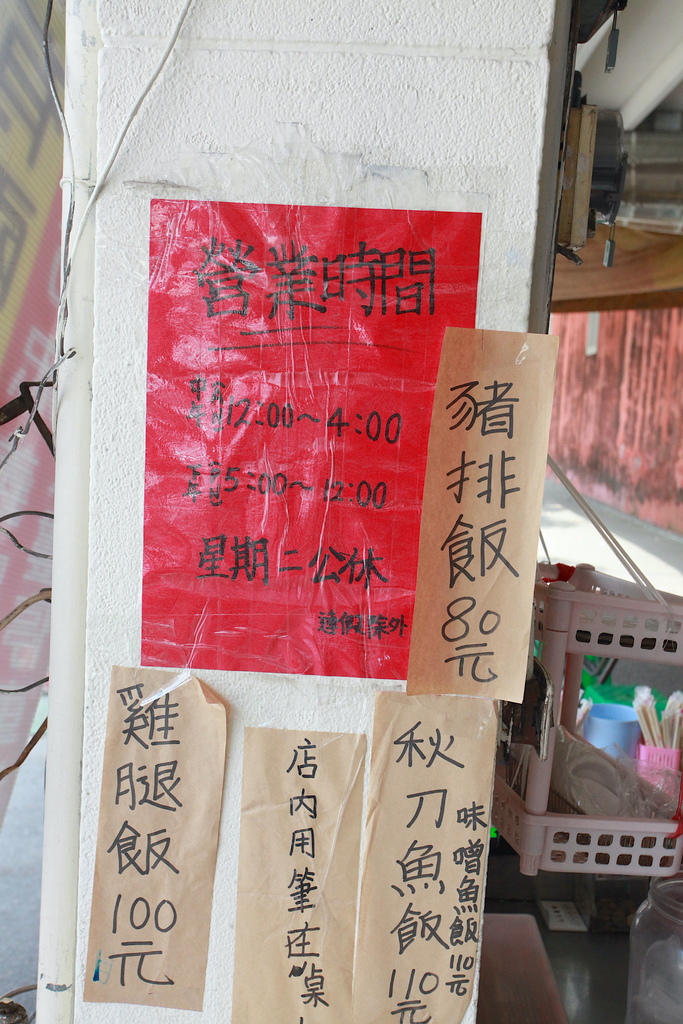 營業時間
中午12:00～4:00
5:00～12:00
星期二公休
適假除外
豬排飯80元
雞腿飯100元
店內用筆在桌
秋刀魚飯110元
味噌魚飯110元